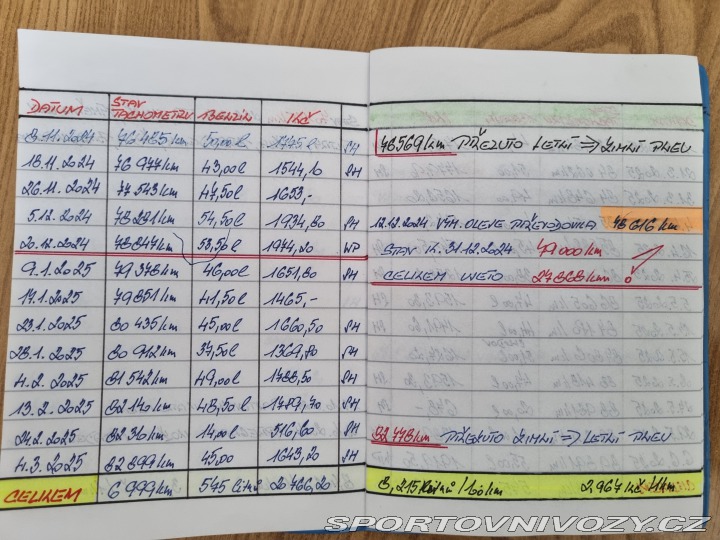 DATUM STAV TACHOMETRU BENZIN KČ
8.11.2024 76 485 km 50,00 l PH
18.11.2024 76 977 km 43,00 l 1544,10 PH
26.11.2024 77 543 km 47,50 l 1653,- PH
5.12.2024 78 281 km 54,50 l 1934,80 PH
20.12.2024 78 847 km 53,50 l 1974,20 WP
9.1.2025 79 378 km 46,00 l 1651,80 PH
17.1.2025 79 851 km 41,50 l 1465,- PH
23.1.2025 80 435 km 45,00 l 1660,50 PH
28.1.2025 80 912 km 37,50 l 1369,80 PH
4.2.2025 81 542 km 49,00 l 1788,50 PH
13.2.2025 82 140 km 48,50 l 1789,70 PH
24.2.2025 14,00 l 516,60 PH
4.3.2025 82 899 km 45,00 1643,20 PH
CELKEM 6 999 km 575 litrů 20 766,20
78 569 km PŘEZUTO LETNÍ => ZIMNÍ PNEU
12.12.2024 VÝM. OLEJE PŘEVODOVKA 78 616 km
STAV K 31.12.2024 79 000 km
CELKEM 27 868 km !
82 778 km PŘEZUTO ZIMNÍ => LETNÍ PNEU
8,215 litrů/100 km 2,967 Kč/1 km
SPORTOVNIVOZY.CZ